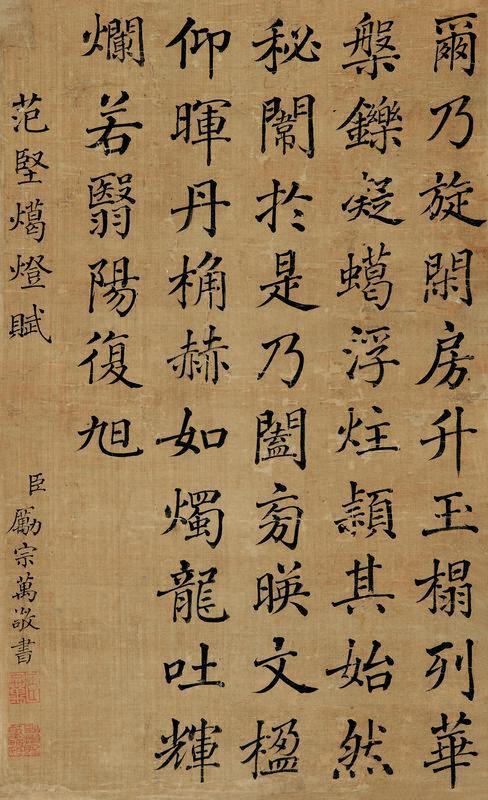 爾乃旋閑房升玉榻列華
槃鑠凝蠟浮炷穎其始然
秘闈於是乃闔旁暎文楹
仰暉丹桷赫如燭龍吐輝
爛若翳陽復旭
范堅爉燈賦
臣勵宗萬敬書